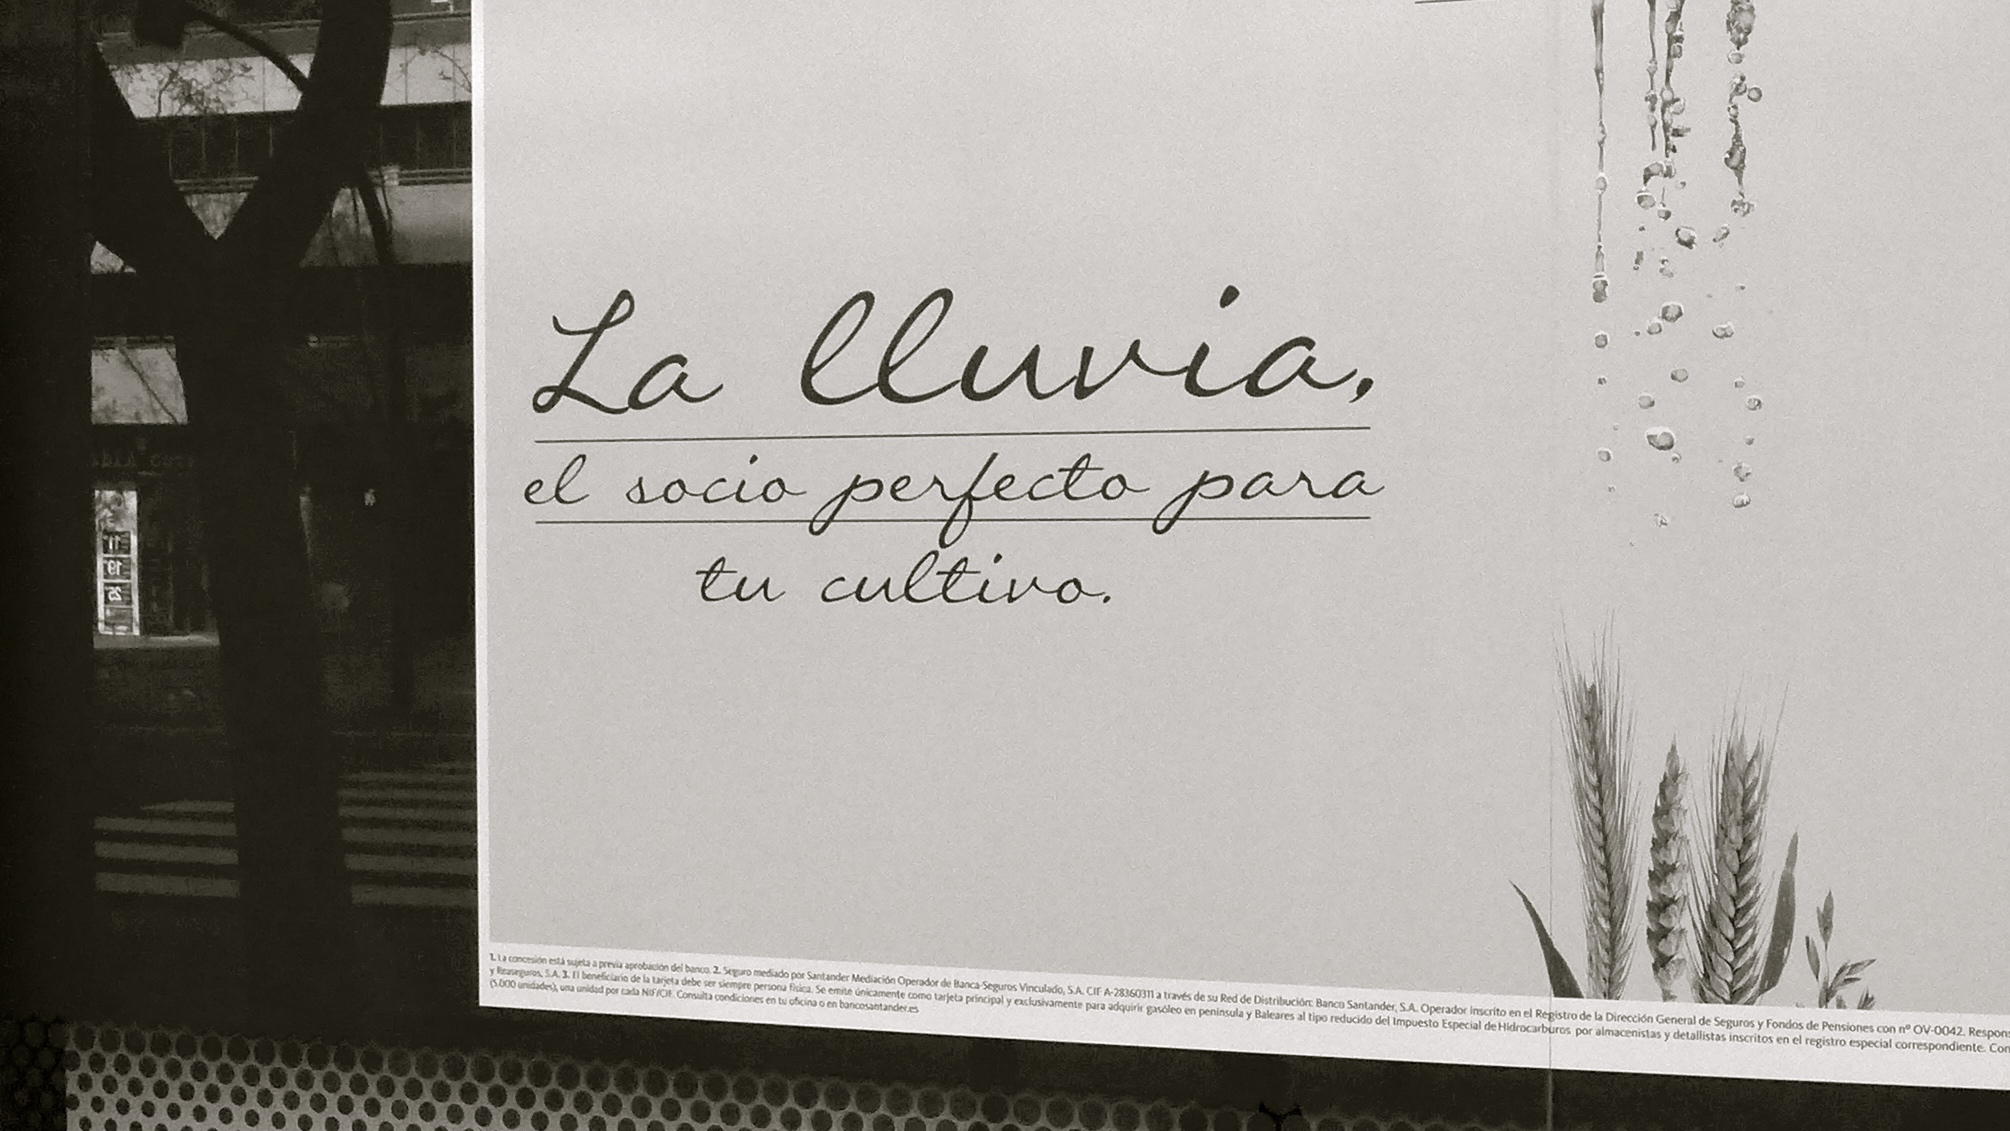 La lluvia,
el socio perfecto para
tu cultivo.
1. La concesión está sujeta a previa aprobación del banco. 2. Seguro mediado por Santander Mediación Operador de Banca-Seguros Vinculado, S.A. CIF A-28360311 a través de su Red de Distribución: Banco Santander, S.A. Operador inscrito en el Registro de la Dirección General de Seguros y Fondos de Pensiones con nº OV-0042. Respons
y Reaseguros, S.A. 3. El beneficiario de la tarjeta debe ser siempre persona física. Se emite únicamente como tarjeta principal y exclusivamente para adquirir gasóleo en península y Baleares al tipo reducido del Impuesto Especial de Hidrocarburos por almacenistas y detallistas inscritos en el registro especial correspondiente. Con
(5.000 unidades), una unidad por cada NIF/CIF. Consulta condiciones en tu oficina o en bancosantander.es